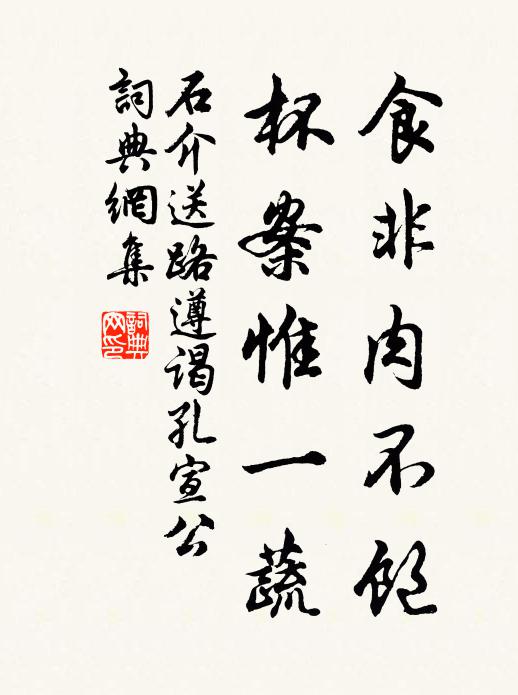 食非肉不飽
杯案惟一蔬
石介送路遵謁孔宣公
詞典網集
詞典
网印